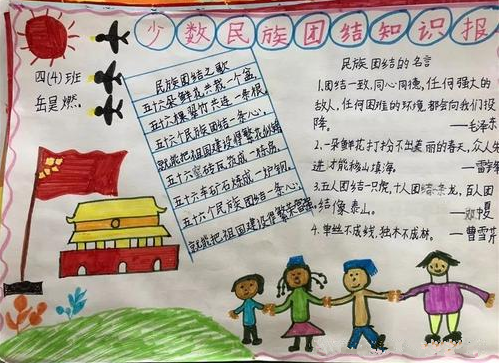 少数民族团结知识报
四(4)班
岳昊燃.
民族团结之歌
五十六朵鲜花共栽一个盆,
五十六棵翠竹共连一条根
五十六个民族团结一条心,
就能把祖国建设得繁花似锦
五十六窑砖瓦荒成一炼窑.
五十六车矿石炼成一炉钢.
五十六个民族团结一条心,
就能把祖国建设得繁荣富强
民族团结的名言
1.团结一致,同心同德,任何强大的
敌人,任何困难的环境都会向我们投
降. —毛泽东
2.一朵鲜花打扮不出美丽的春天,众人先
进才能移山填海. —雷锋
3.五人团结一只虎,十人团结来龙,百人团
结像泰山. —邓中夏
4.单丝不成线,独木不成林. —曹雪芹